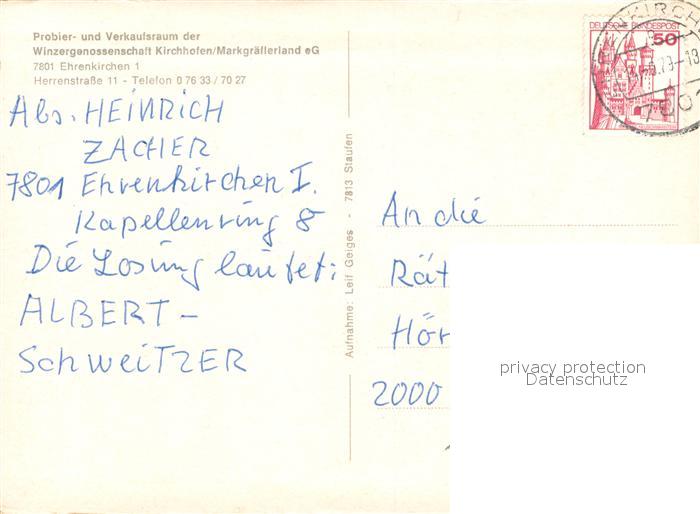 Probier- und Verkaufsraum der
Winzergenossenschaft Kirchhofen/Markgräflerland eG
7801 Ehrenkirchen 1
Herrenstraße 11 - Telefon 0 76 33 / 70 27
Abs. HEINRICH
ZACHER
7801 Ehrenkirchen I.
Kapellenring 8
Die Losung lautet:
ALBERT -
SCHWEITZER
Aufnahme: Leif Geiges - 7813 Staufen
DEUTSCHE BUNDESPOST
50
An die
Rät
Hör
2000
privacy protection
Datenschutz